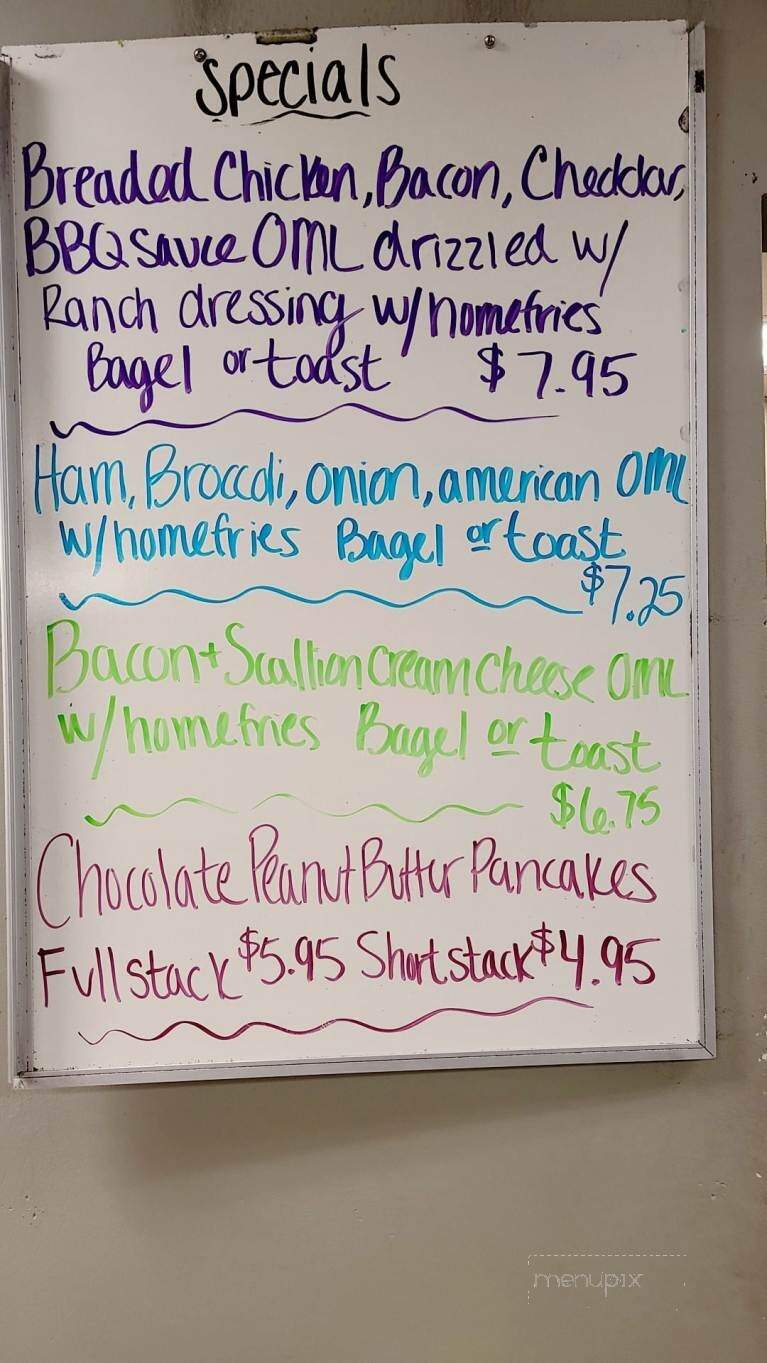 Specials
Breaded Chicken, Bacon, Cheddar,
BBQ Sauce OML drizzled w/
Ranch dressing w/homefries
Bagel or toast $7.95
Ham, Broccoli, onion, american OML
w/homefries Bagel or toast
$7.25
Bacon + Scallion Cream Cheese OML
w/homefries Bagel or toast
$6.75
Chocolate Peanut Butter Pancakes
Full stack $5.95 Short stack $4.95
menupix